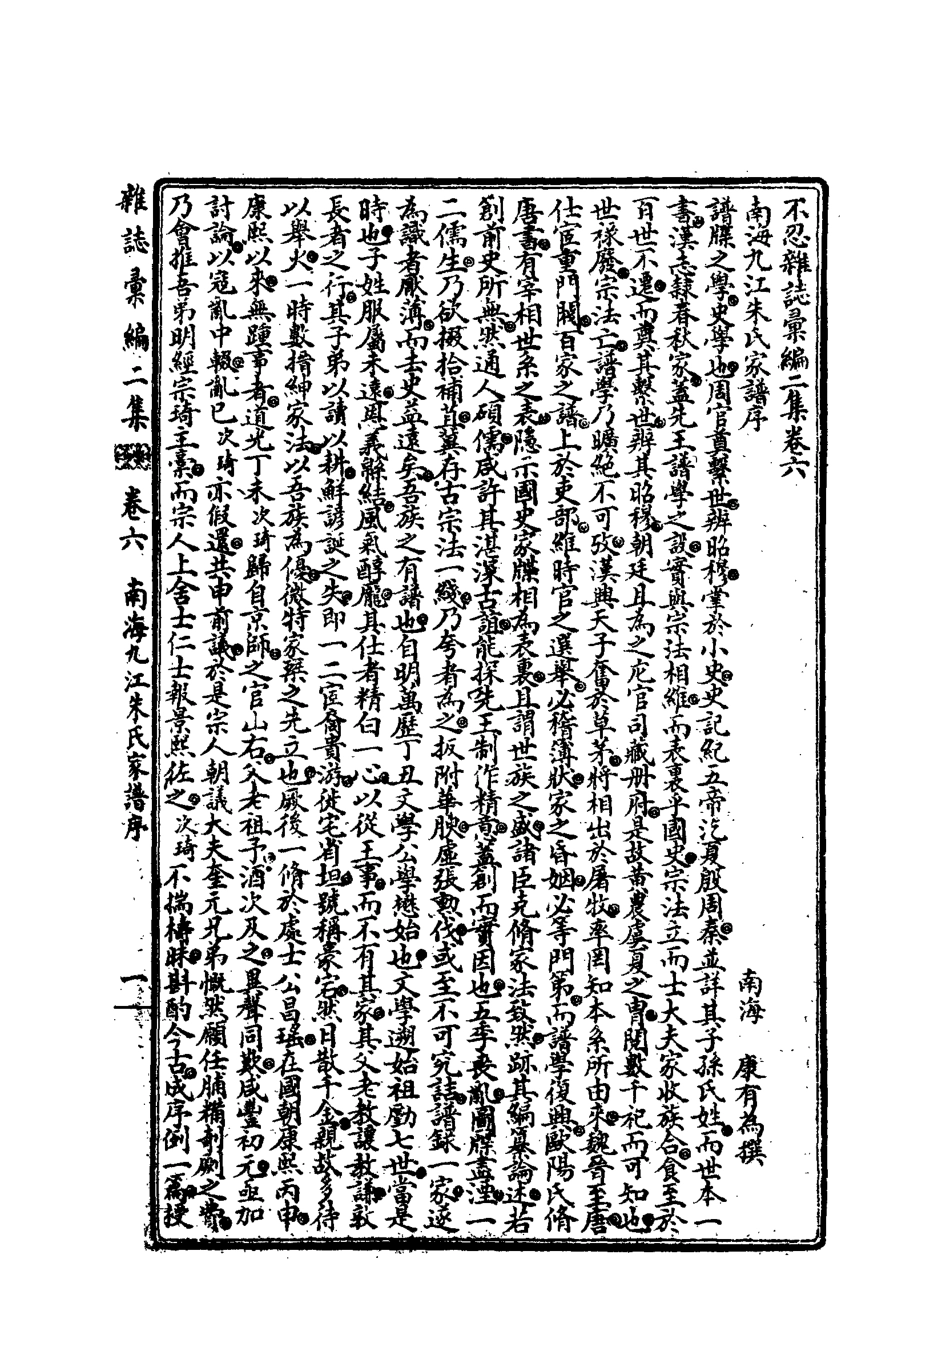 不忍雜誌彙編二集卷六
南海九江朱氏家譜序
南海 康有為撰
譜牒之學史學也周官奠繫世辨昭穆掌於小史史記紀五帝訖夏殷周秦並詳其子孫氏姓而世本一
書漢志隸春秋家蓋先王譜學之設實與宗法相維而表裏乎國史宗法立而士大夫家收族合食至於
百世不遷而奠其繫世辨其昭穆朝廷且為之庀官司藏册府是故黃農虞夏之冑閱數千祀而可知也
世祿廢宗法亡譜學乃曠絕不可攷漢興天子奮於草茅將相出於屠牧率罔知本系所由來魏晉至唐
仕宦重門閥百家之譜上於吏部維時官之選舉必稽簿狀家之昏姻必等門第而譜學復興歐陽氏修
唐書有宰相世系之表隱示國史家牒相為表裏且謂世族之盛諸臣克脩家法致然跡其編纂論述若
創前史所無然通人碩儒咸許其湛深古誼能探先王制作精意蓋創而實因也五季喪亂圖牒盡湮一
二儒生乃欲掇拾補苴冀存古宗法一綫乃夸者為之扳附華腴虛張勳伐或至不可究詰譜錄一家遂
為識者厭薄而去史益遠矣吾族之有譜也自明萬歷丁丑文學公學懋始也文學遡始祖勵七世當是
時也子姓服屬未遠恩義觧結風氣醇龐其仕者精白一心以從王事而不有其家其父老教讓教謙敦
長者之行其子弟以讀以耕鮮諺誕之失即一二宦裔貴游從宅渻垣號稱豪宕然日散千金親故多待
以舉火一時數搢紳家法以吾族為優微特家槼之先立也厥後一脩於處士公昌瑤在國朝康熙丙申
康熙以來無踵事者道光丁未次琦歸自京師之官山右父老祖予酒次及之異聲同歎咸豐初元亟加
討論以寇亂中輟亂已次琦亦假還共申前議於是宗人朝議大夫奎元兄弟慨然願任脯糒剞劂之費
乃會推吾弟明經宗琦主稾而宗人上舍士仁士報景熙佐之次琦不揣檮昧斟酌今古成序例一篇授
雜誌彙編二集 卷六 南海九江朱氏家譜序 一